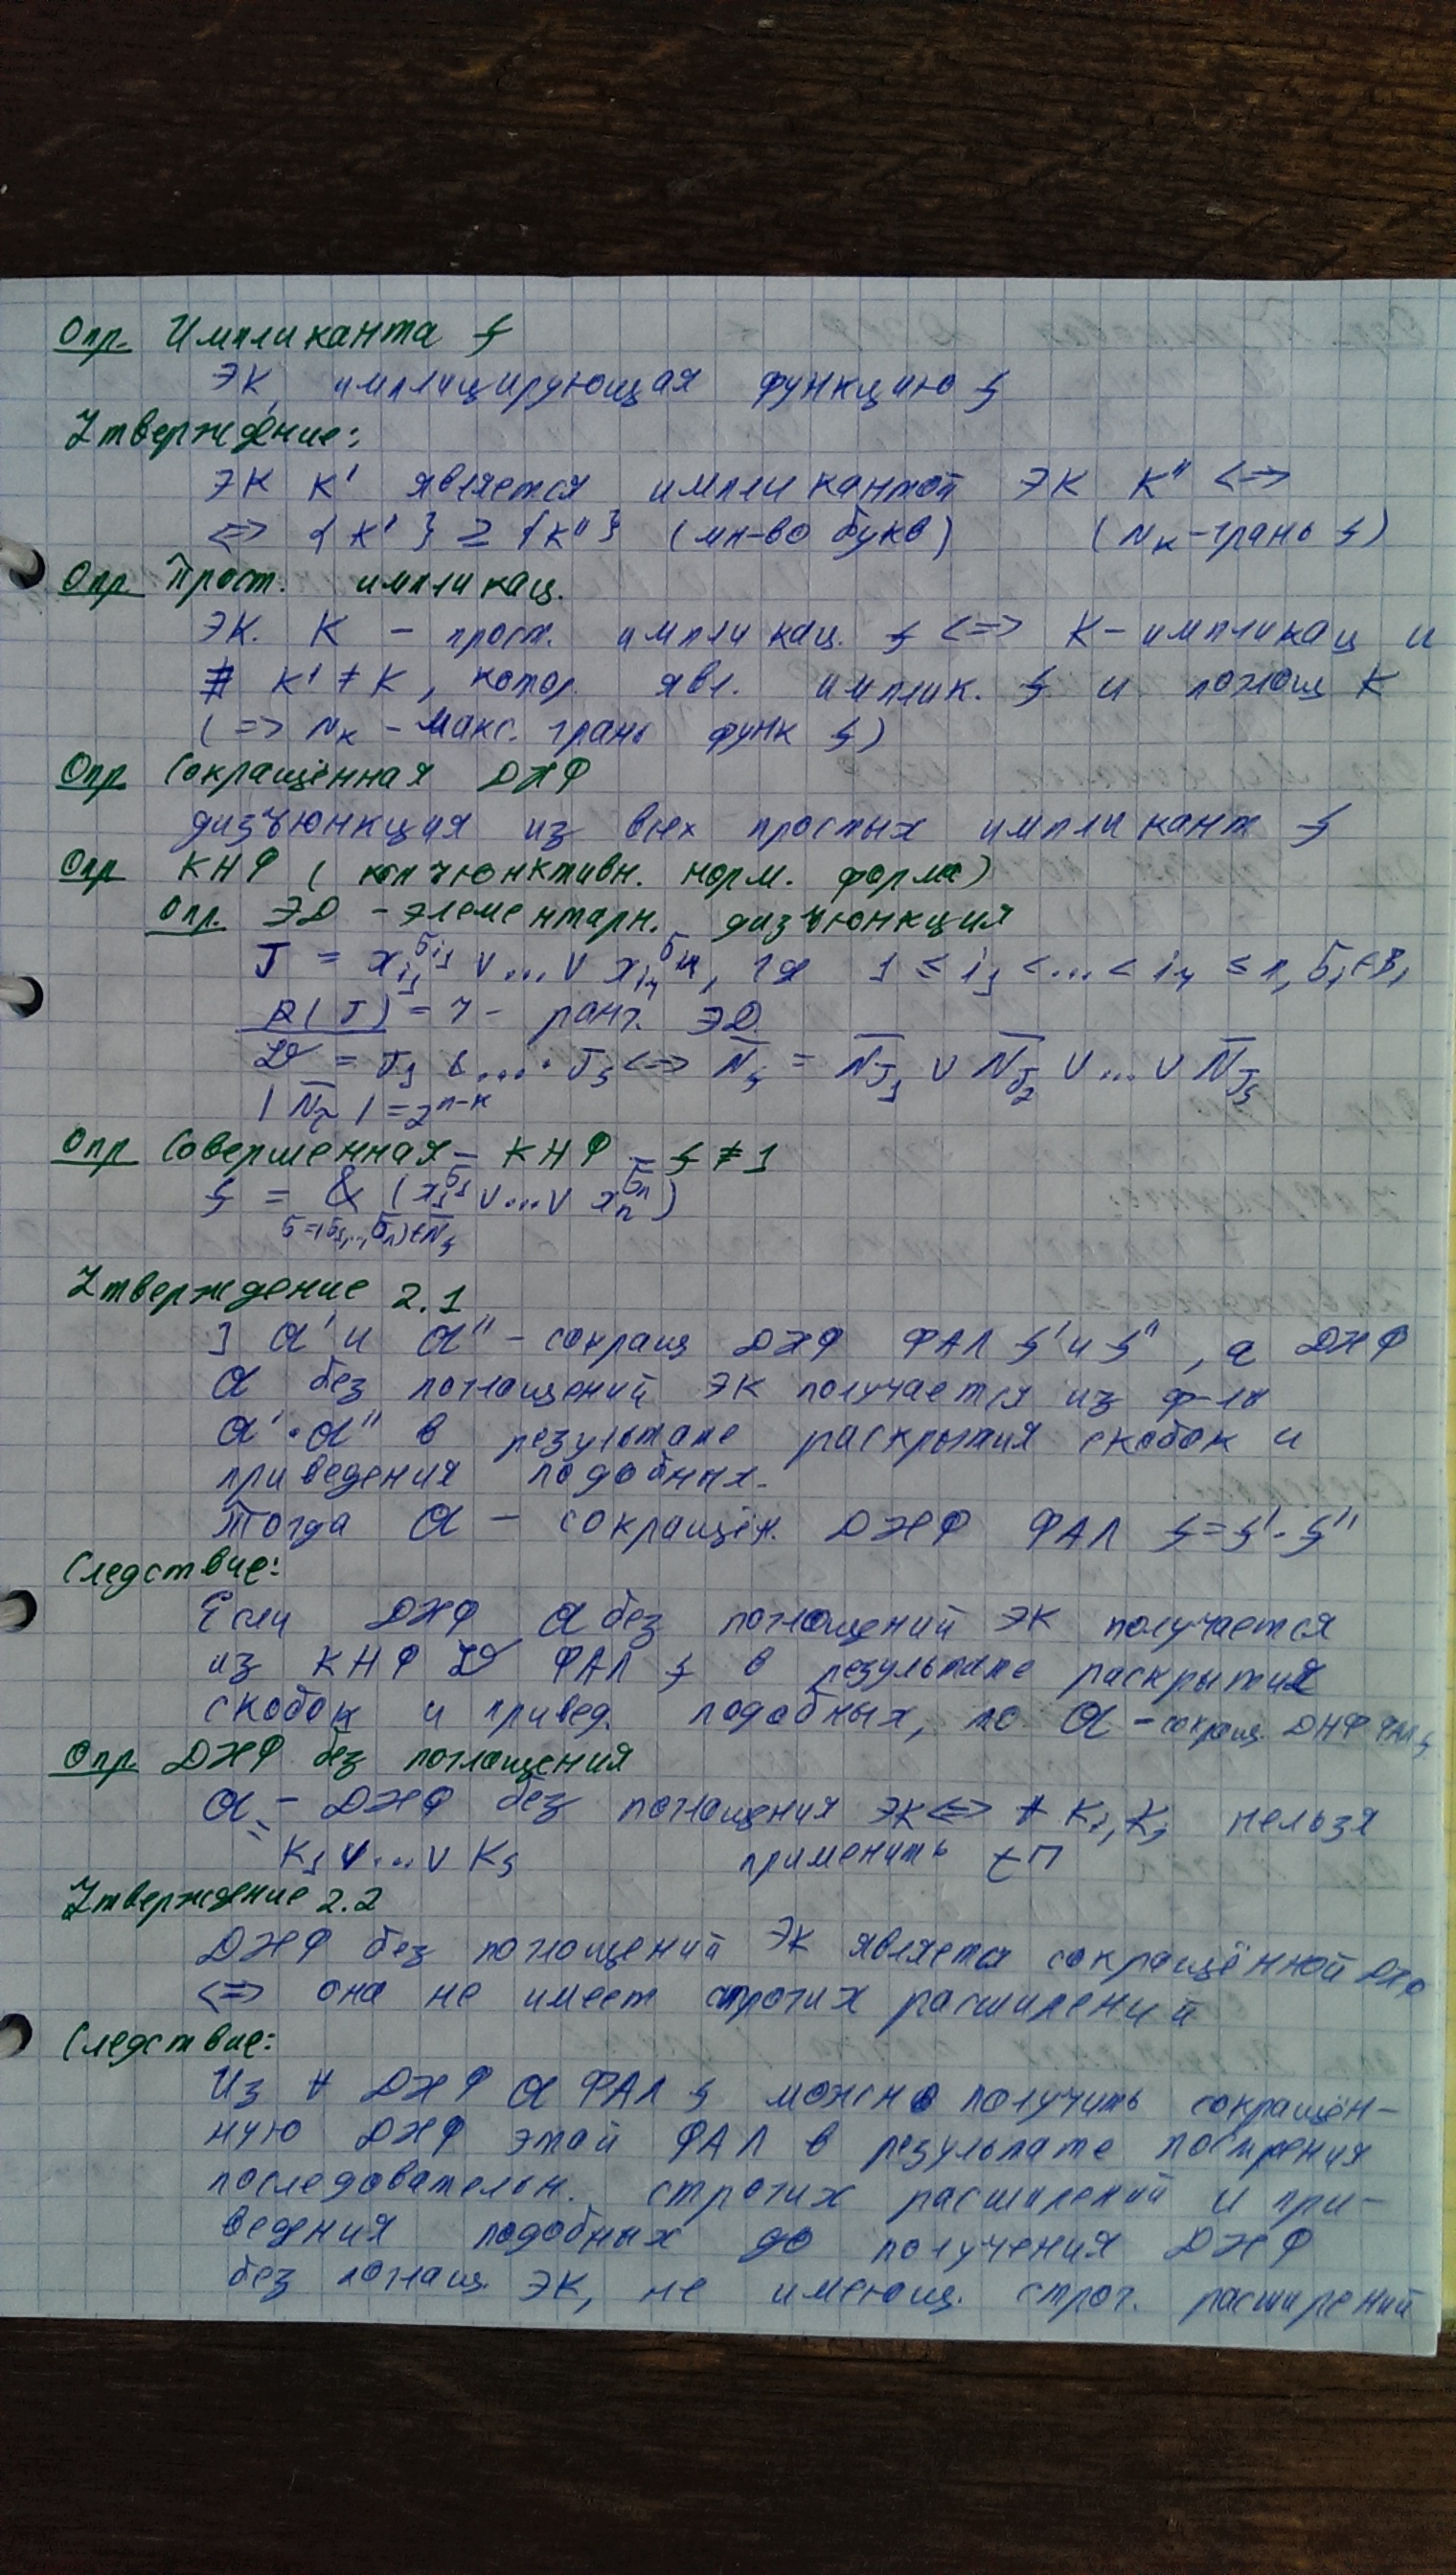 Опр. Импликанта f
ЭК, имплицирующая функцию f
Утверждение:
ЭК K' является импликантой ЭК K'' <=>
<=> {K'} ⊇ {K''} (мн-во букв) (N_K - грань f)
Опр. Прост. импликац.
ЭК. K - прост. импликац. f <=> K - импликац и
∄ K' ≠ K, котор. явл. имплик. f и поглощ K
(=> N_K - макс. грань функ f)
Опр Сокращённая ДНФ
дизъюнкция из всех простых импликант f
Опр КНФ (конъюнктивн. норм. форма)
Опр. ЭД - элементарн. дизъюнкция
J = x_{i_1}^{σ_{i_1}} ∨ ... ∨ x_{i_r}^{σ_{i_r}}, где 1 ≤ i_1 < ... < i_r ≤ n, σ_i ∈ B,
R(J) = r - ранг. ЭД.
= J_1 & .... · J_s <=> N̄_f = N̄_{J_1} ∪ N̄_{J_2} ∪ ... ∪ N̄_{J_s}
| = 2^{n-k}
Опр Совершенная - КНФ - f ≠ 1
f = & (x_1^{σ̄_1} ∨ ... ∨ x_n^{σ̄_n})
σ=(σ_1,..,σ_n)∈N̄_f
Утверждение 2.1
] α' и α'' - сокращ ДНФ ФАЛ f' и f'', а ДНФ
α без поглощений ЭК получается из ф-лы
α'·α'' в результате раскрытия скобок и
приведения подобных.
Тогда α - сокращён. ДНФ ФАЛ f = f'·f''
Следствие:
Если ДНФ α без поглощений ЭК получается
из КНФ ФАЛ f в результате раскрытия
скобок и привед. подобных, то α - сокращ. ДНФ ФАЛ f
Опр. ДНФ без поглощения
α - ДНФ без поглощения ЭК <=> ∀ K_i, K_j нельзя
= K_1 ∨ ... ∨ K_s применить tП
Утверждение 2.2
ДНФ без поглощений ЭК является сокращённой ДНФ
<=> она не имеет строгих расширений
Следствие:
Из ∀ ДНФ α ФАЛ f можно получить сокращён-
ную ДНФ этой ФАЛ в результате построения
последовательн. строгих расширений и при-
ведения подобных до получения ДНФ
без поглащ. ЭК, не имеющ. строг. расширений